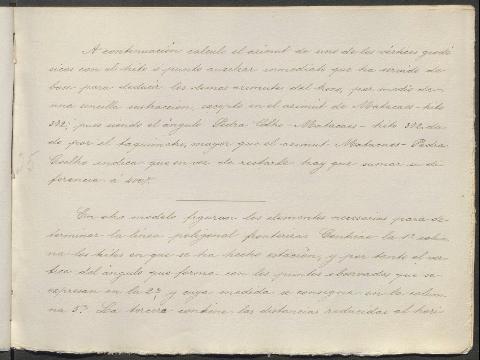 A continuación calculé el azimut de uno de los vértices geodé-
sicos con el hito ó punto auxiliar inmediato que ha servido de
base para deducir los demas azimutes del trozo, por medio de
una sencilla sustracción, excepto en el azimut de Matacaes-hito
332; pues siendo el ángulo Pedra Coelho-Matacaes-hito 332, da-
do por el taquímetro, mayor que el azimut Matacaes-Pedra
Coelho indica que en vez de restarle hay que sumar su di-
ferencia á 400g.
En otro modelo figuran los elementos necesarios para de-
terminar la línea poligonal fronteriza. Contiene la 1ª colum-
na los hitos en que se ha hecho estación, y por tanto el vér-
tice del ángulo que forma con los puntos observados que se
expresan en la 2ª y cuya medida se consigna en la colum-
na 5ª. La tercera contiene las distancias reducidas al hori-